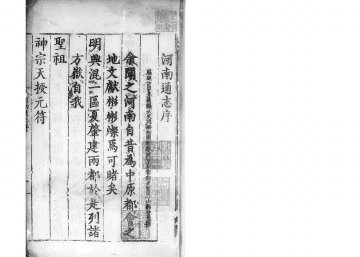 河南通志序
余聞之河南自昔為中原都會之
地文獻彬彬燦焉可睹矣
明興混一區夏肇建兩都於是列諸
方嶽自我
聖祖
神宗天授元符